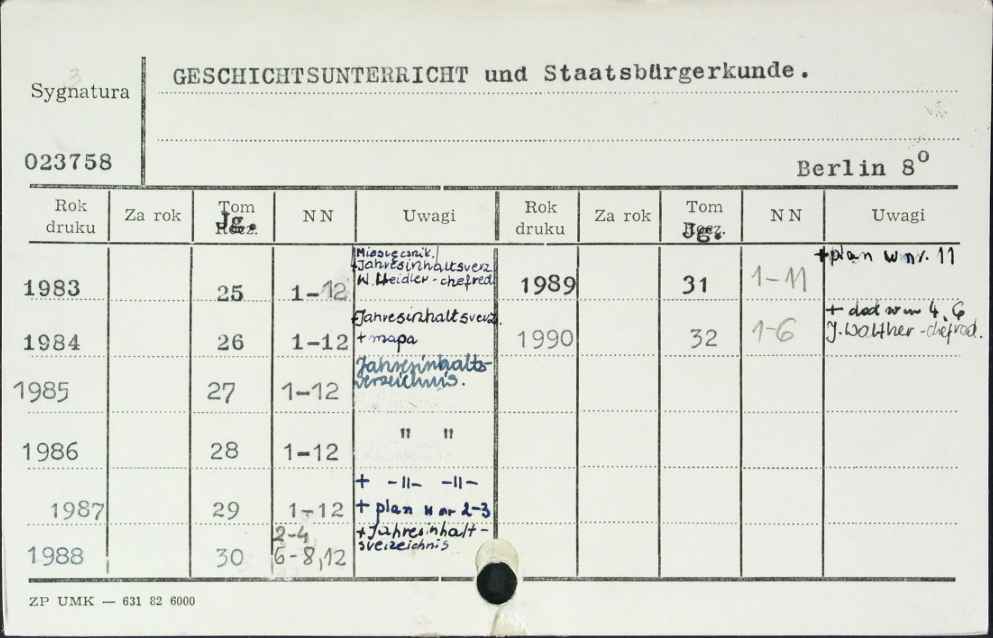 Sygnatura
GESCHICHTSUNTERRICHT und Staatsbürgerkunde.
023758
Berlin 8⁰
Rok druku Za rok Tom Jg. Rocz. NN Uwagi Rok druku Za rok Tom Jg. Rocz. NN Uwagi
1983 25 1-12 Miesięcznik.
+Jahresinhaltsverz.
W. Heidler - chefred.
1989 31 1-11 +plan w nr. 11
1984 26 1-12 +Jahresinhaltsverz.
+ mapa
1990 32 1-6 + dod w nr 4, 6
J. Walther - chefred.
1985 27 1-12 Jahresinhalts-
verzeichnis.
1986 28 1-12 " "
1987 29 1-12 + -||- -||-
+ plan w nr 2-3
1988 30 2-4
6-8,12 +Jahresinhalt-
sverzeichnis
ZP UMK — 631 82 6000